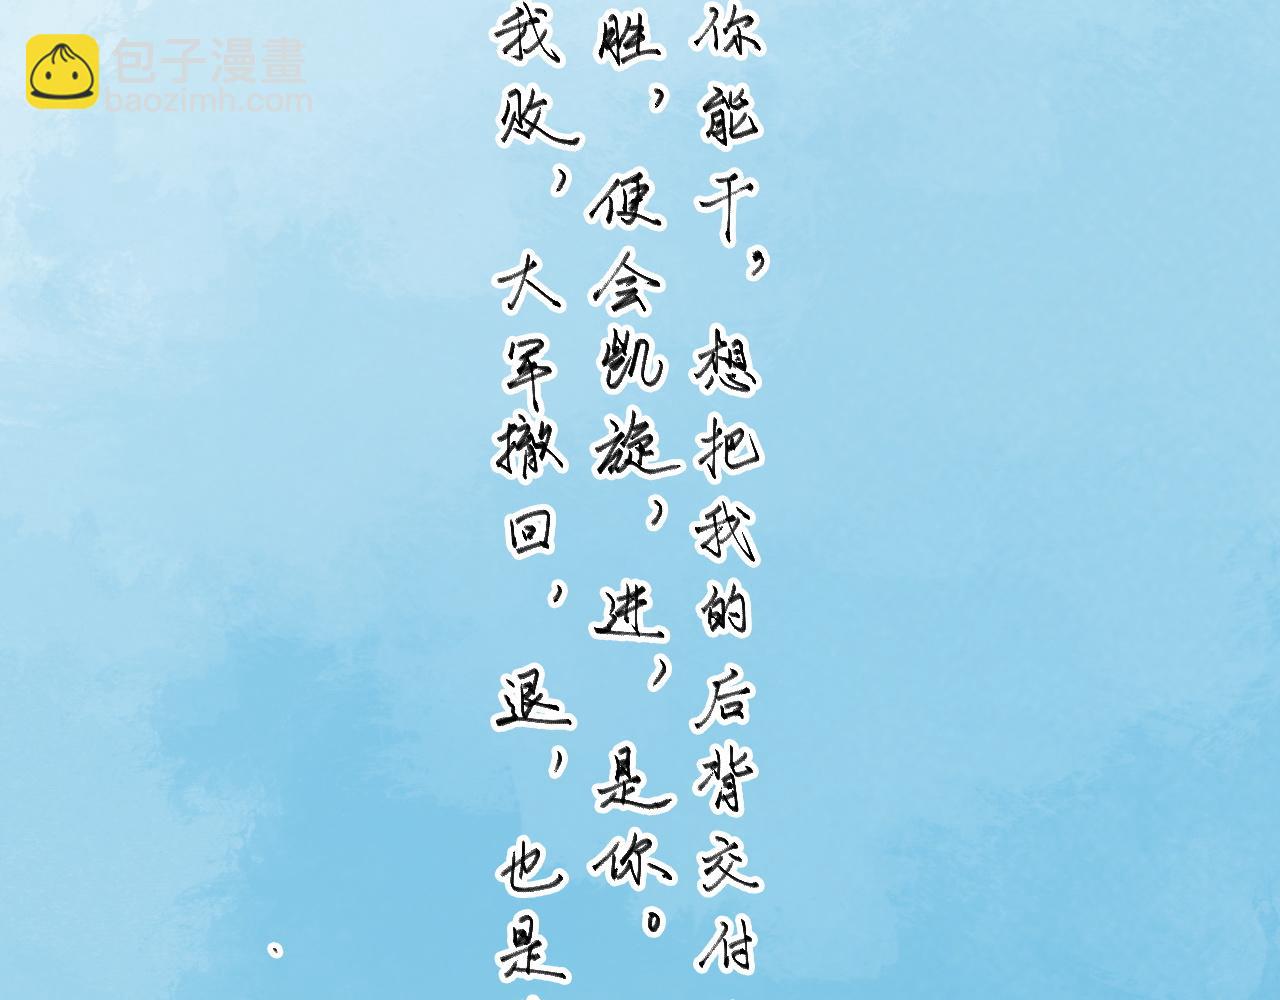 包子漫畫
baozimh.com
你能干，想把我的后背交付
胜，便会凯旋，进，是你。
我败，大军撤回，退，也是